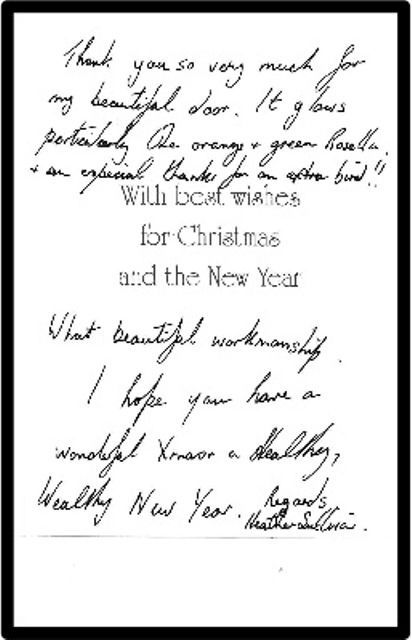 Thank you so very much for
my beautiful door. It glows
particularly the orange + green Rosella.
+ an especial thanks for an extra bird!!
With best wishes
for Christmas
and the New Year
What beautiful workmanship.
I hope you have a
wonderful Xmas or a Healthy,
Wealthy New Year. Regards
Heather Sullivan.